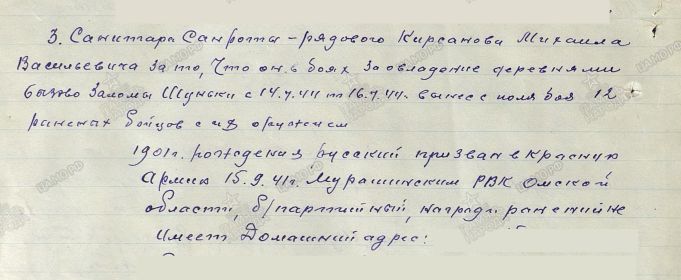 3. Санитара Санроты – рядового Кирсанова Михаила
Васильевича За то, Что он в боях За овладение деревнями
Заломы Шуньки с 14.7.44 по 16.7.44. вынес с поля боя 12
раненых бойцов с их оружием
1901 г. рождения русский призван в Красную
Армию 15.9.41 г. РВК Омской
области, б/партийный, наград. ранений не
имеет Домашний адрес: